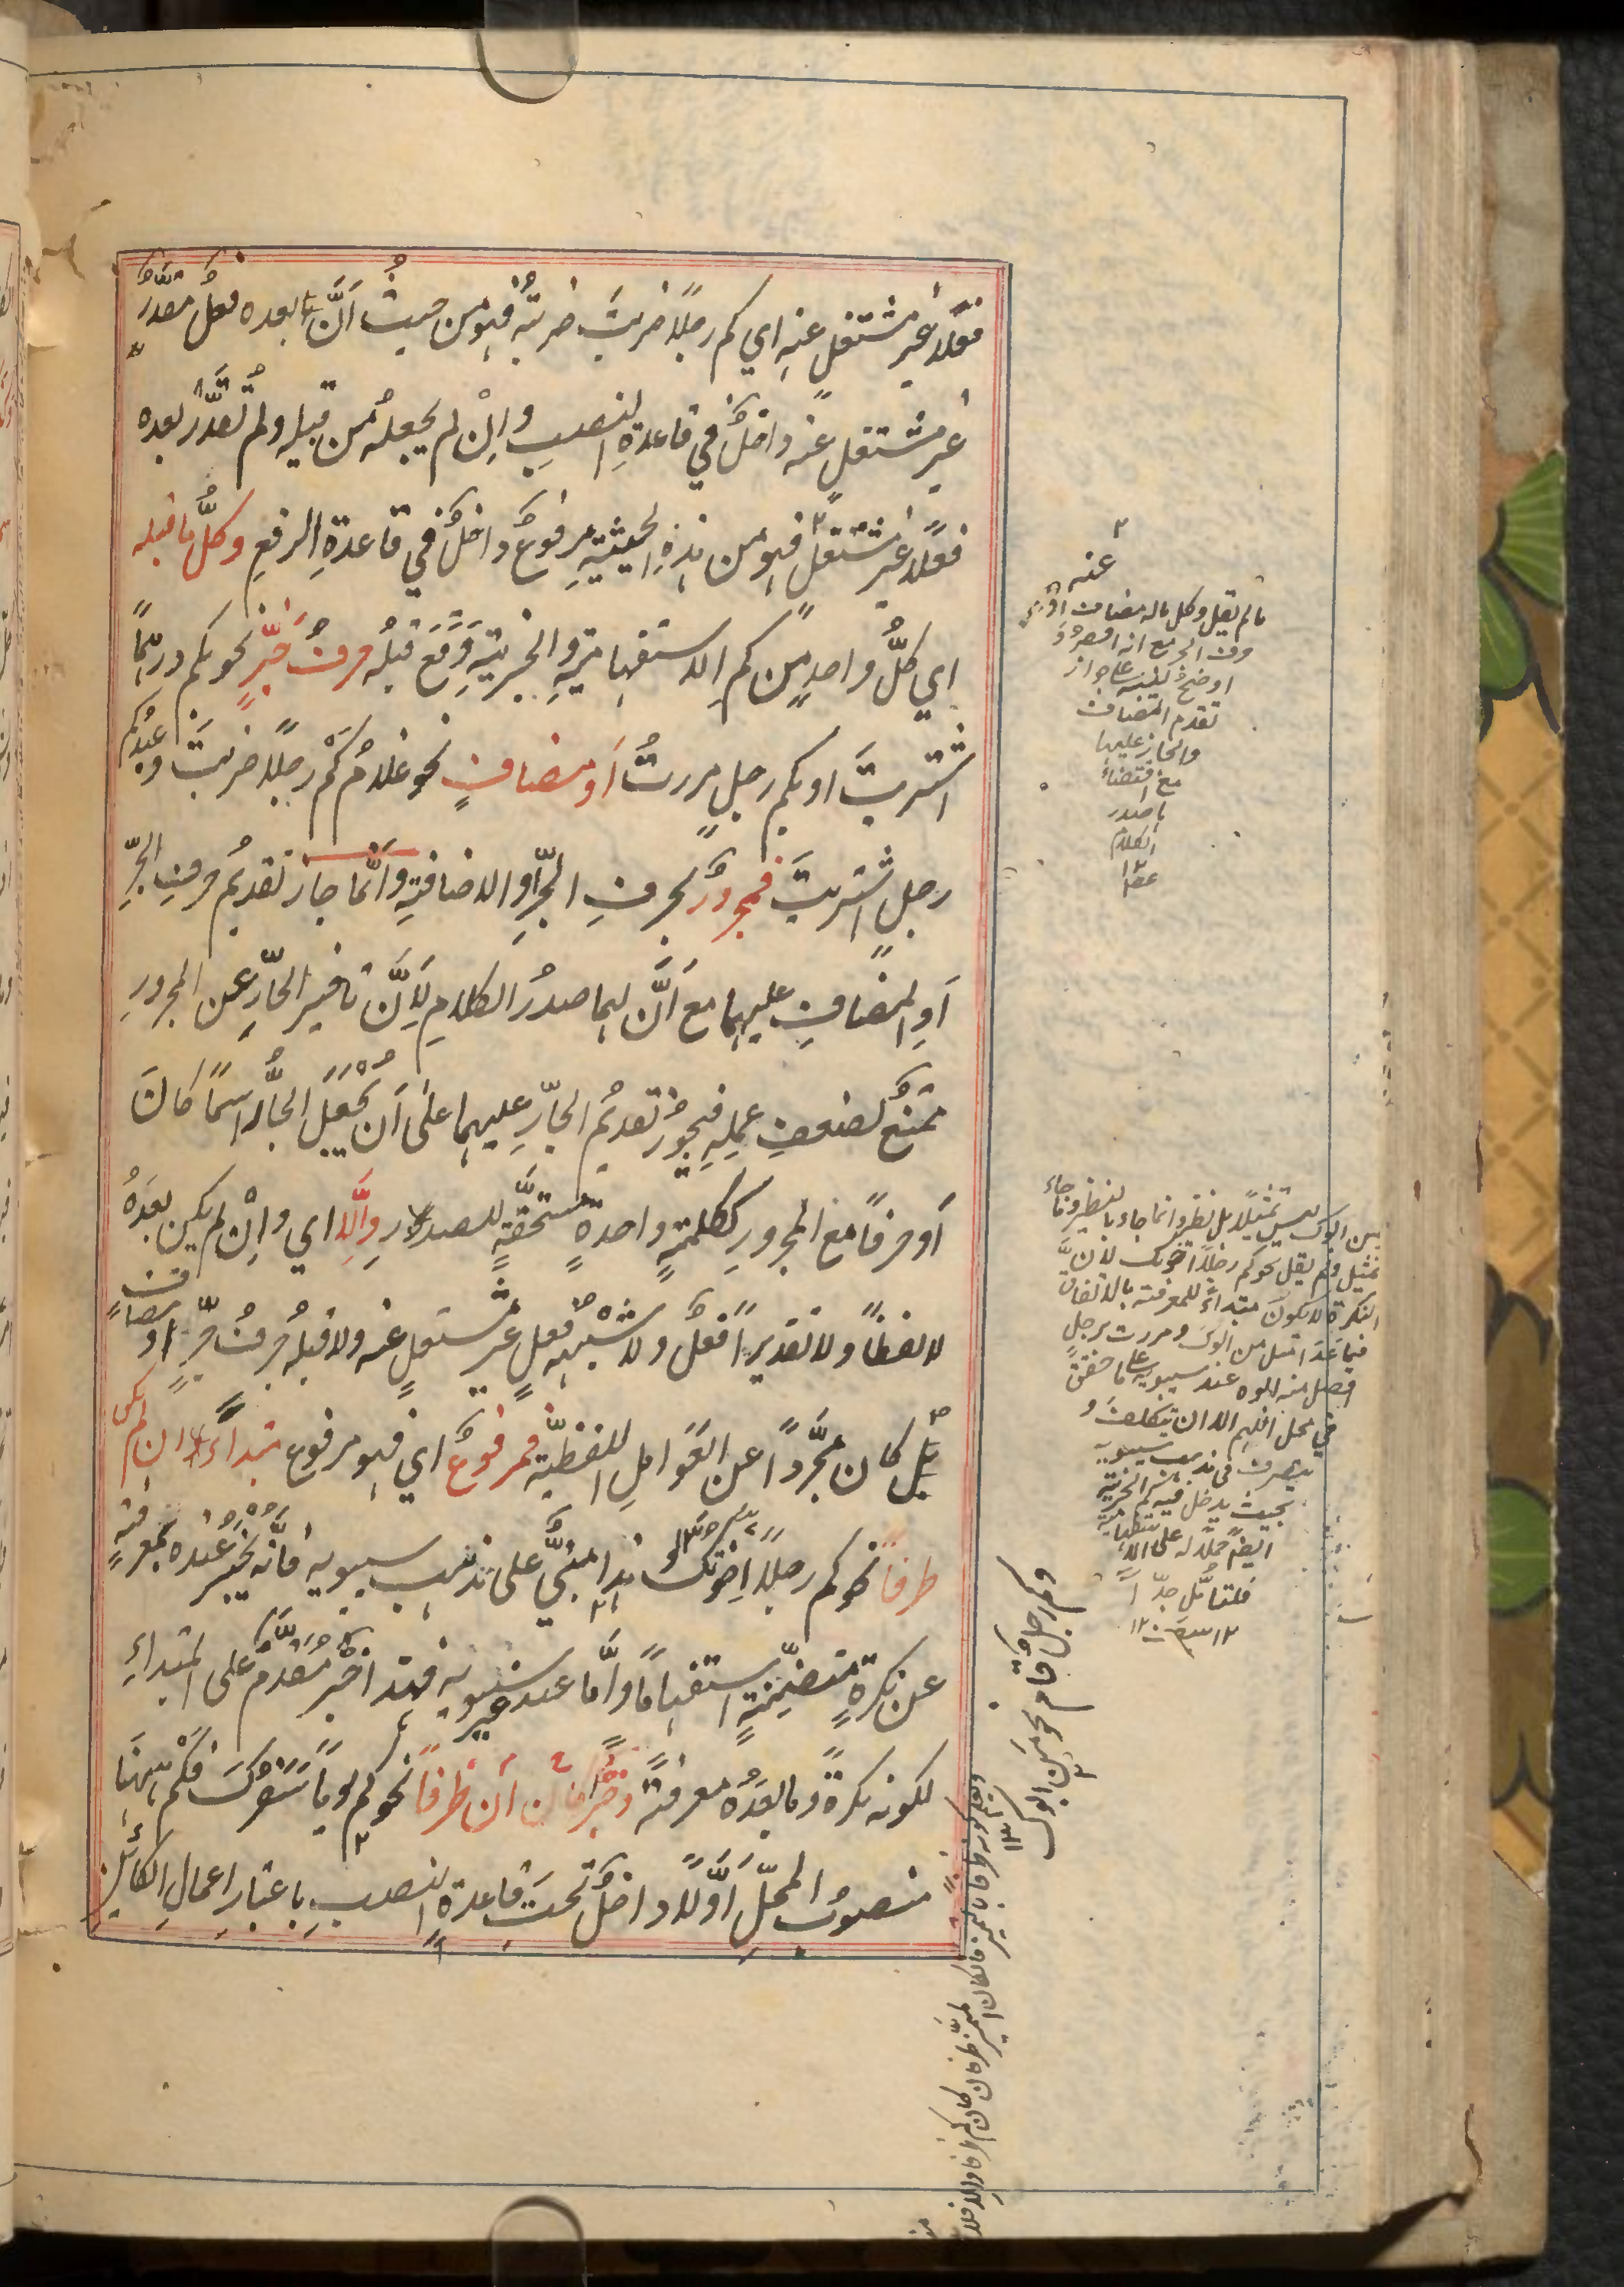 فعلًا غيرَ مشتغلٍ عنه اي كم رجلًا ضربتَ ضربتُه فهو من حيثُ اَنَّ ما بعده فعلٌ مقدَّرٌ
غير مشتغلٍ عنه داخلٌ في قاعدةِ النصبِ واِنْ لم يجعلْه من قبيله ولم تُقدِّرْ بعده
فعلًا غير مشتغلٍ فهو من هذه الحيثيةِ مرفوعٌ داخلٌ في قاعدةِ الرفعِ وكلُّ ما قبله
اي كلُّ واحدٍ من كم الاستفهاميةِ والخبريةِ وَقَعَ قبلَه حرفُ جَرٍّ نحو بكم درهمًا
اشتريتَ او بكم رجلٍ مررتُ اَو مضافٍ نحو غلامُ كَمْ رجلًا ضربتَ وعبدُ كم
رجلٍ اشتريتَ فمجرورٌ بحرفِ الجرِّ او الاضافةِ واِنَّما جاز تقديمُ حرفِ الجرِّ
اَوِ المضافِ عليهما مع اَنَّ لهما صدرَ الكلامِ لِاَنَّ تاخيرَ الجارِّ عن المجرورِ
ممتنعٌ لضعفِ عملِه فيجوزُ تقديمُ الجارِّ عليهما على اَنْ يُجْعَلَ الجارُّ اسمًا كانَ
اَو حرفًا مع المجرورِ ككلمةٍ واحدةٍ مستحقَّةٍ للصدارِ وَاِلَّا اي واِنْ لم يكن بعدَهُ
لا لفظًا ولا تقديرًا فعلٌ ولا شِبْهُه فعلٍ غير مشتغلٍ عنه ولا قبلَه حرفُ جرٍّ او مضافٌ
بل كان مجرَّدًا عن العَوَاملِ اللفظيَّةِ فمرفوعٌ اي فهو مرفوع مبتداءٌ ان لم يكن
ظرفًا نحو كم رجلًا اِخوتُك وهذا مبنيٌّ على مذهب سيبويه فانَّه يُخْبِرُ عنده بمعرفةٍ
عن نكرةٍ متضمِّنةٍ استفهامًا واَمَّا عند غير سيبويه فهذا خبرٌ مُقَدَّمٌ على المبتداءِ
لكونه نكرةً وما بعدَهُ معرفةً وخبرٌ ان كان ظرفًا نحو كم يومًا سَفَرُكَ فكَمْ ههنَا
منصوبُ المحلِّ اَوَّلًا داخلٌ تحتَ قاعدةِ النصبِ باعتبارِ اعمالِ الكائنِ
عنه
ما لم يقل وكل ما له مضاف او
حرف الجر مع انه اقصرُ وَ
اوضحُ لتنبيه على جواز
تقدم المضاف
والجار عليها
مع اقتضاء
ها صدر
الكلام
١٢
من ابوك ليس تمثيلًا بل نظيرٌ وانما جاء بالنظير دون
تمثيل ولم يقل نحو كم رجلًا اخوتك لِاَنَّ
النكرة لا تكون مبتداءً للمعرفة بالاتفاق
فيما عَدَا مثل من ابوك ومررت برجل
افضل منه ابوه عند سيبويه على ما حقق
في محل اللهم الا ان يتكلف و
يتصرف في مذهب سيبويه
بحيث يدخل فيه كم الخبرية
ايضًا حملًا له على الاستفهامية
فليتامَّل جدًّا
وكم رجلٍ قام نحو مَن ابوك